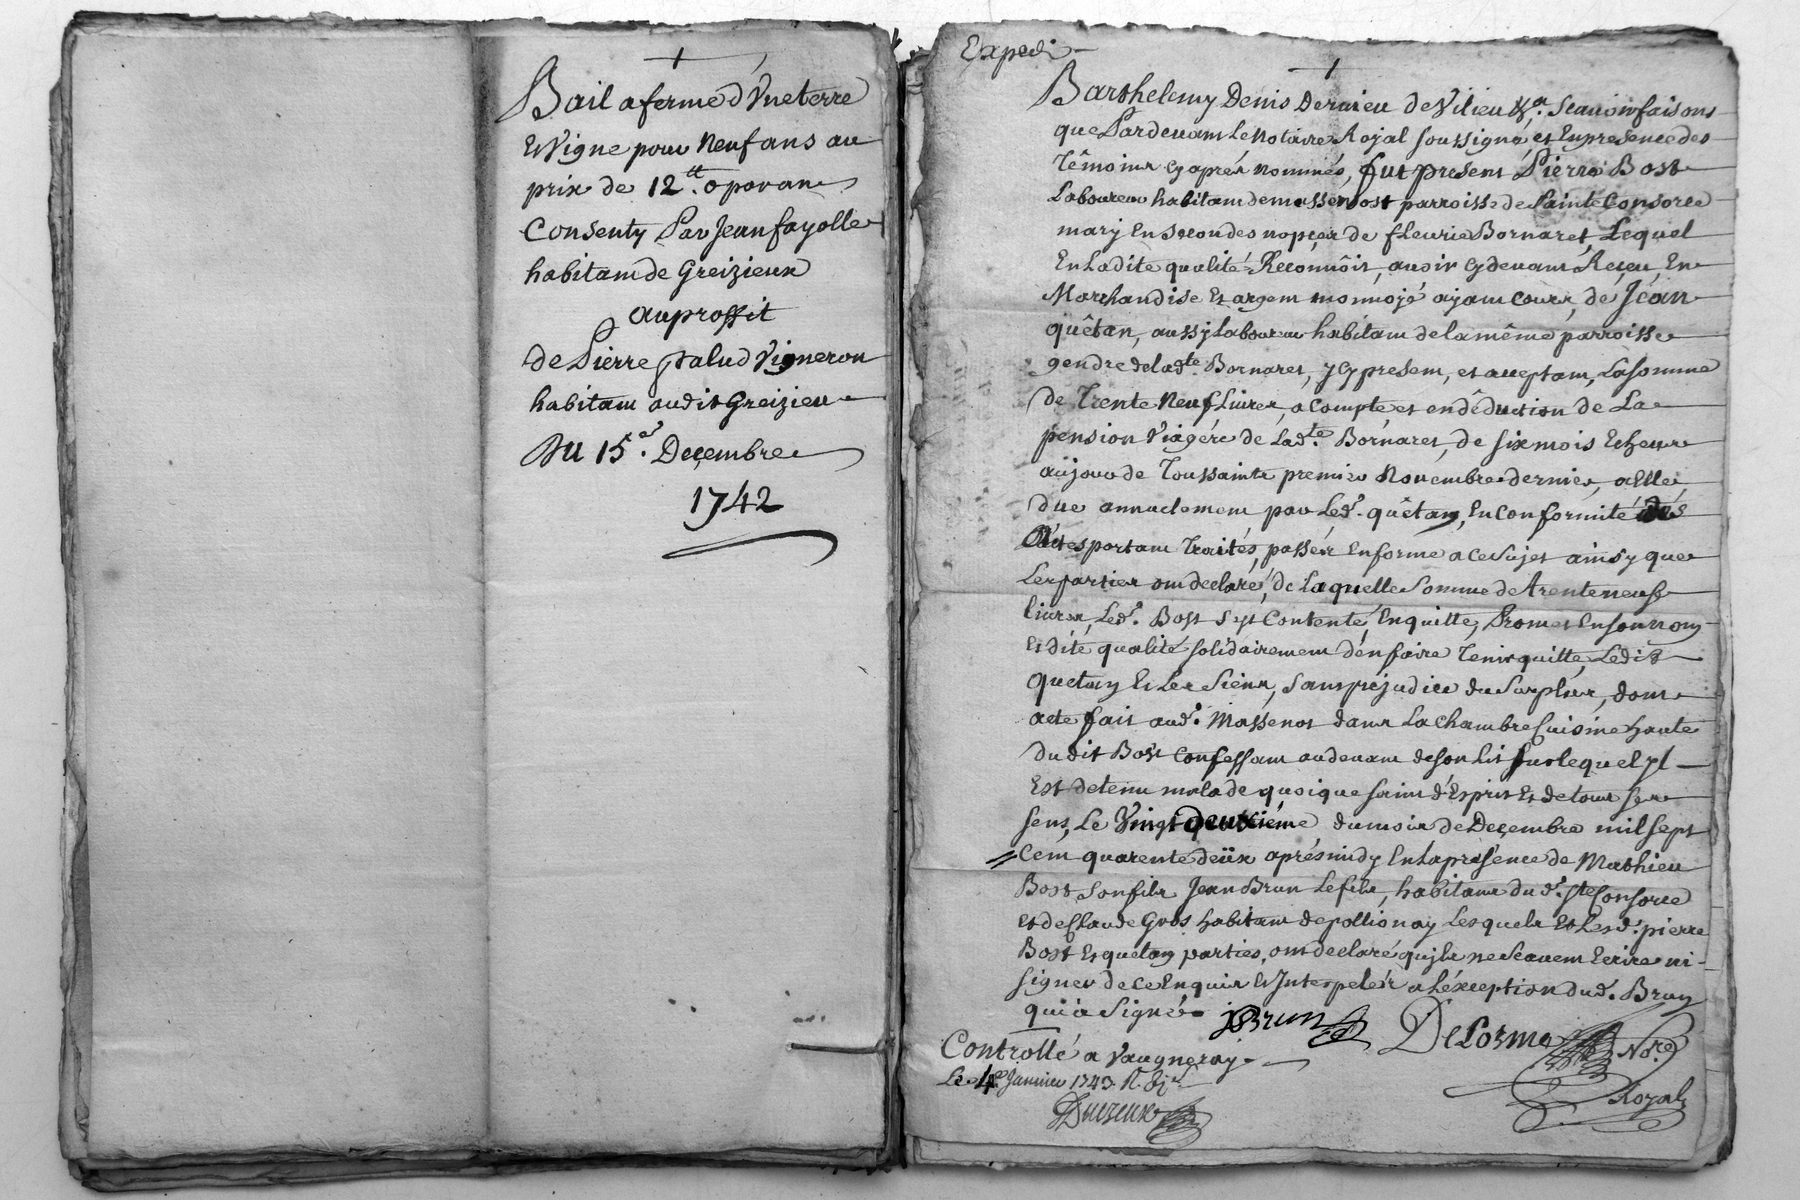 Bail a ferme d'Une terre
Et Vigne pour Neuf ans au
prix de 12.tt o par an
Consenty Par Jean fayolle
habitant de Greizieux
au proffit
de Pierre Salud Vigneron
habitant audit Greizieu
Du 15.e Decembre
1742
Expedi
Barthelemy Denis Dervieu de Vilieu &.a Scavoir faisons
que Pardevant Le Notaire Royal soussigné, et En presence des
Témoins cy aprés nommés, fut present Pierre Bost
Laboureur habitant de massenost parroisse de Sainte Consorce
mary En secondes nopces de fleurie Bornaret, Lequel
En Ladite qualité Reconnôit, avoir cy devant Reçeu, En
Marchandise Et argent monnoyé ayant cours, de Jean
quêtan, aussy Laboureur habitant de la même parroisse
gendre de lad.te Bornaret, ycy present, et acceptant, La somme
de Trente Neuf Livres, a compte et en dêduction de La
pension Viagére de Lad.te Bornaret, de six mois Echeux
au jour de Toussaints premier Novembre dernier, a Elle
due annuelement par Led.t quêtan, En conformité des
Actes portant Traités, passés En forme a ce sujet ainsy que
Les parties ont declaré, de Laquelle somme de trente neuf
livres, Led.t Bost s'est Contenté, En quitte, Promet En son nom
Et dite qualité solidairement d'en faire Tenir quitte, Ledit
quetan Et Les Siens, sans prejudice du surplus, dont
acte fait aud.t Massenot dans La Chambre Cuisine haute
dudit Bost Confessant au devant de son Lit sur lequel yl
Est detenu malade quoique sain d'Esprit Et de tous ses
sens, Le Vingt deuxiéme du mois de Decembre mil sept
Cent quarente deüx aprés midy En la presence de Mathieu
Bost son fils Jean Brun Le fils, habitants du d.t Ste Consorce
et de Claude Gros habitant de pollionay Lesquels Et Les d.t pierre
Bost Et quetan parties, ont declaré qu'jls ne scavent Ecrire ni
signer de ce Enquis Et Interpelés a L'éxception dud.t Brun
qui a Signé
jBrun
Delorme
No.re
Royal
Controllé a Vaugneray
Le 4e Janvier 1743. R.